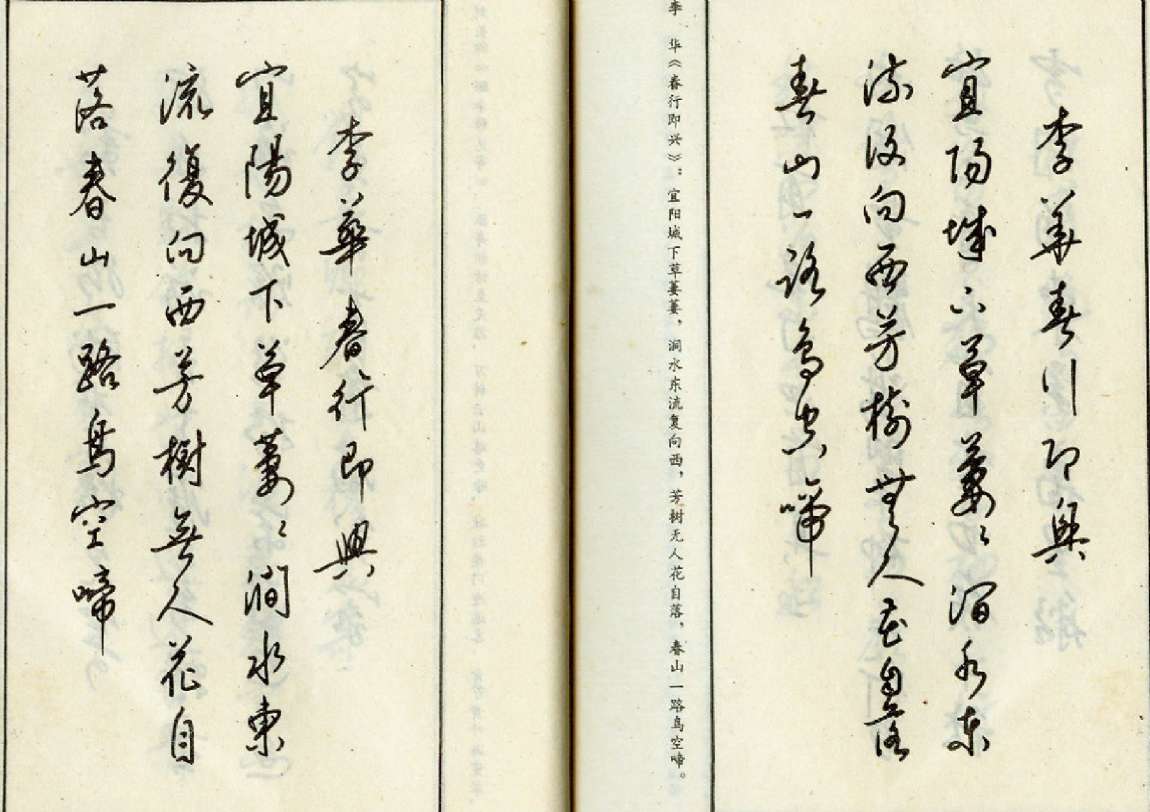 李華春行即興
宜陽城下草萋〻澗水東
流復向西芳樹無人花自落
春山一路鳥空啼
李 华《春行即兴》：宜阳城下草萋萋，涧水东流复向西，芳树无人花自落，春山一路鸟空啼。
李華春行即興
宜陽城下草萋〻澗水東
流復向西芳樹無人花自
落春山一路鳥空啼